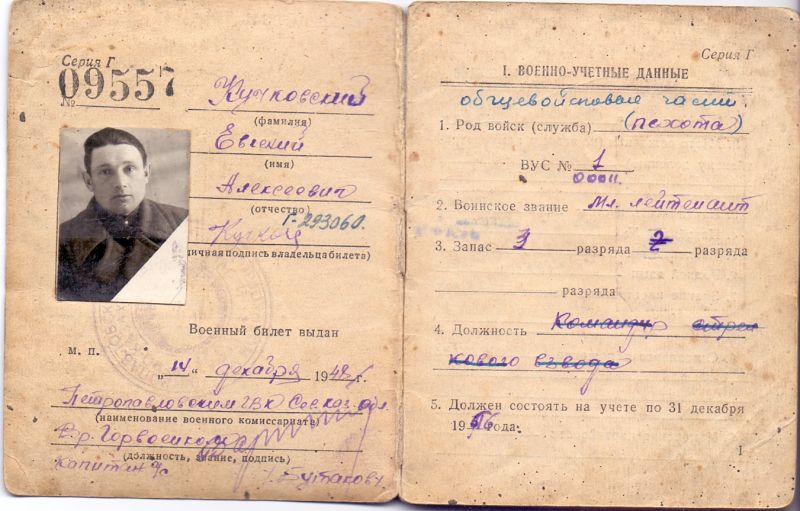 Серия Г
№ 09557
Кучковский
(фамилия)
Евгений
(имя)
Алексеевич
(отчество)
Г-293060.
(личная подпись владельца билета)
Военный билет выдан
м. п. „14" декабря 1948 г.
Петропавловским ГВК Сев. каз. обл.
(наименование военного комиссариата)
Горвоенком
(должность, звание, подпись)
капитан Бутаков
Серия Г
I. ВОЕННО-УЧЕТНЫЕ ДАННЫЕ
общевойсковые части
1. Род войск (служба) (пехота)
ВУС № 1
2. Воинское звание Мл. лейтенант
3. Запас разряда 2 разряда
разряда
4. Должность Командир стрел
кового взвода
5. Должен состоять на учете по 31 декабря
19 года.
I